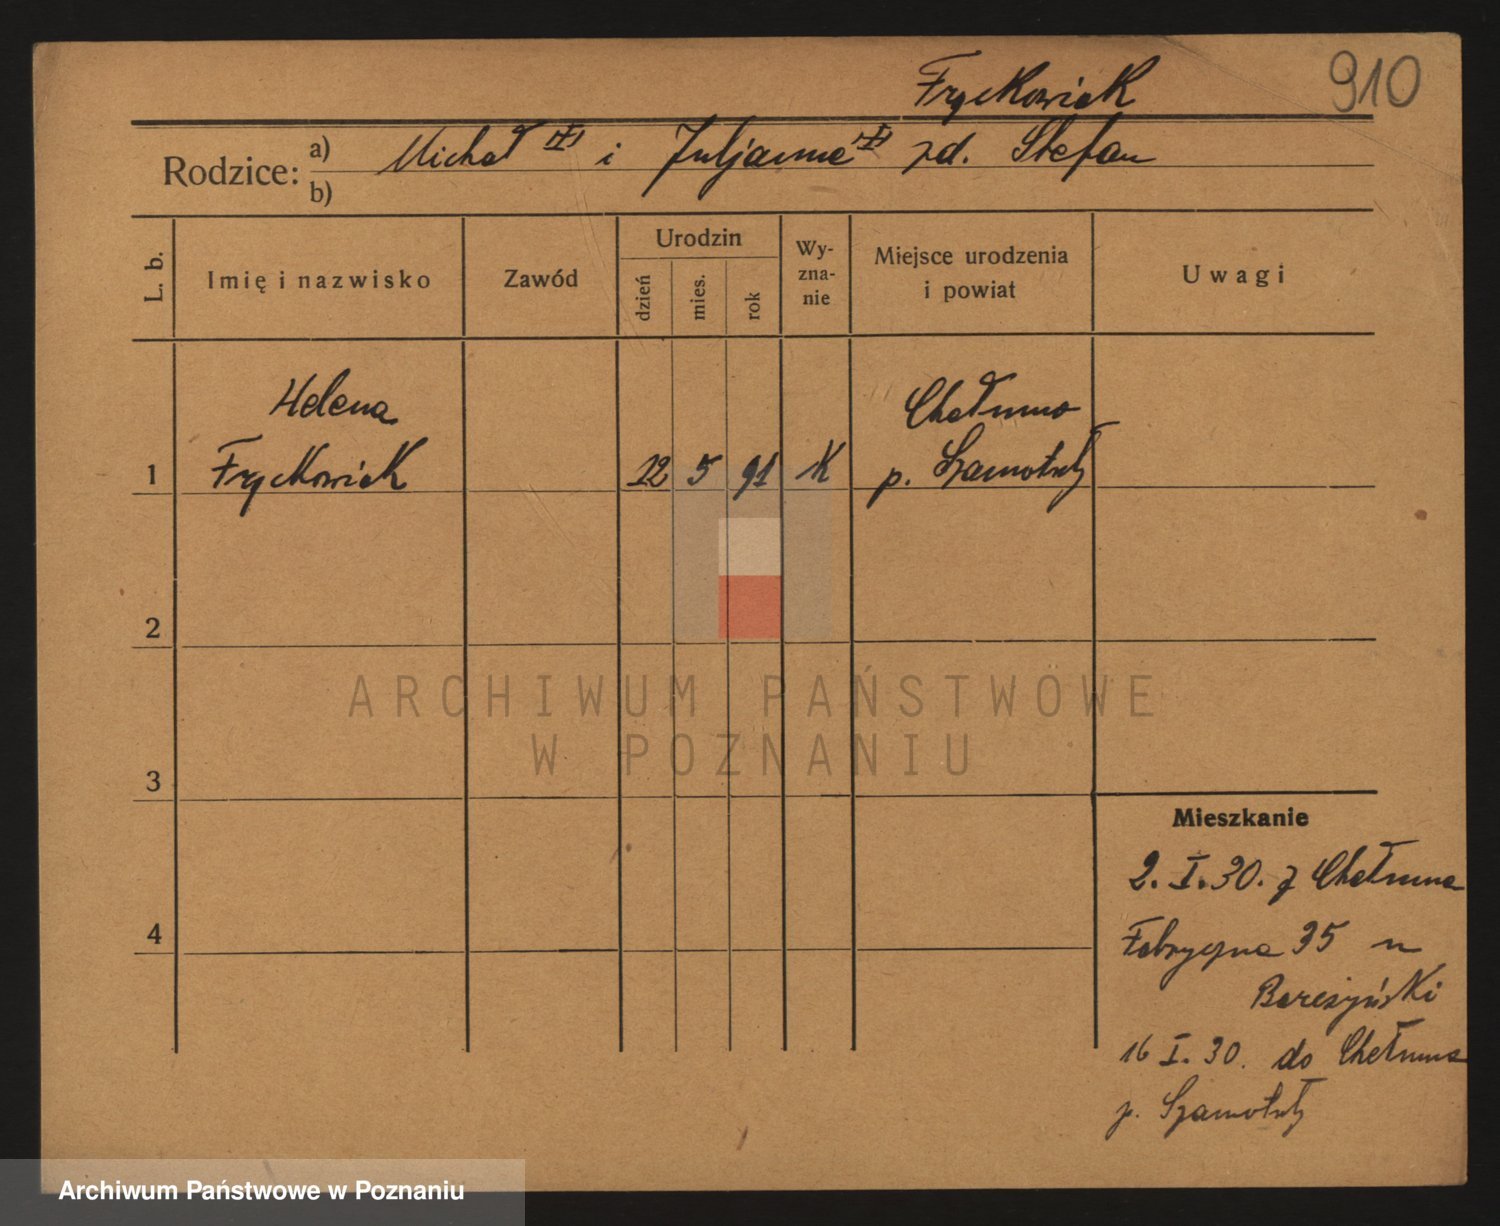 Frąckowiak
910
Rodzice: a) Michał i Juljanna zd. Stefan
b)
L. b.
Imię i nazwisko
Zawód
Urodzin
dzień
mies.
rok
Wy-
zna-
nie
Miejsce urodzenia
i powiat
Uwagi
Helena Chełmno
1 Frąckowiak 12 5 91 K p. Szamotuły
2
3
4
ARCHIWUM PAŃSTWOWE
W POZNANIU
Mieszkanie
2. I. 30. z Chełmna
Fabryczna 35 u
16 I. 30. do Chełmna
p. Szamotuły
Archiwum Państwowe w Poznaniu